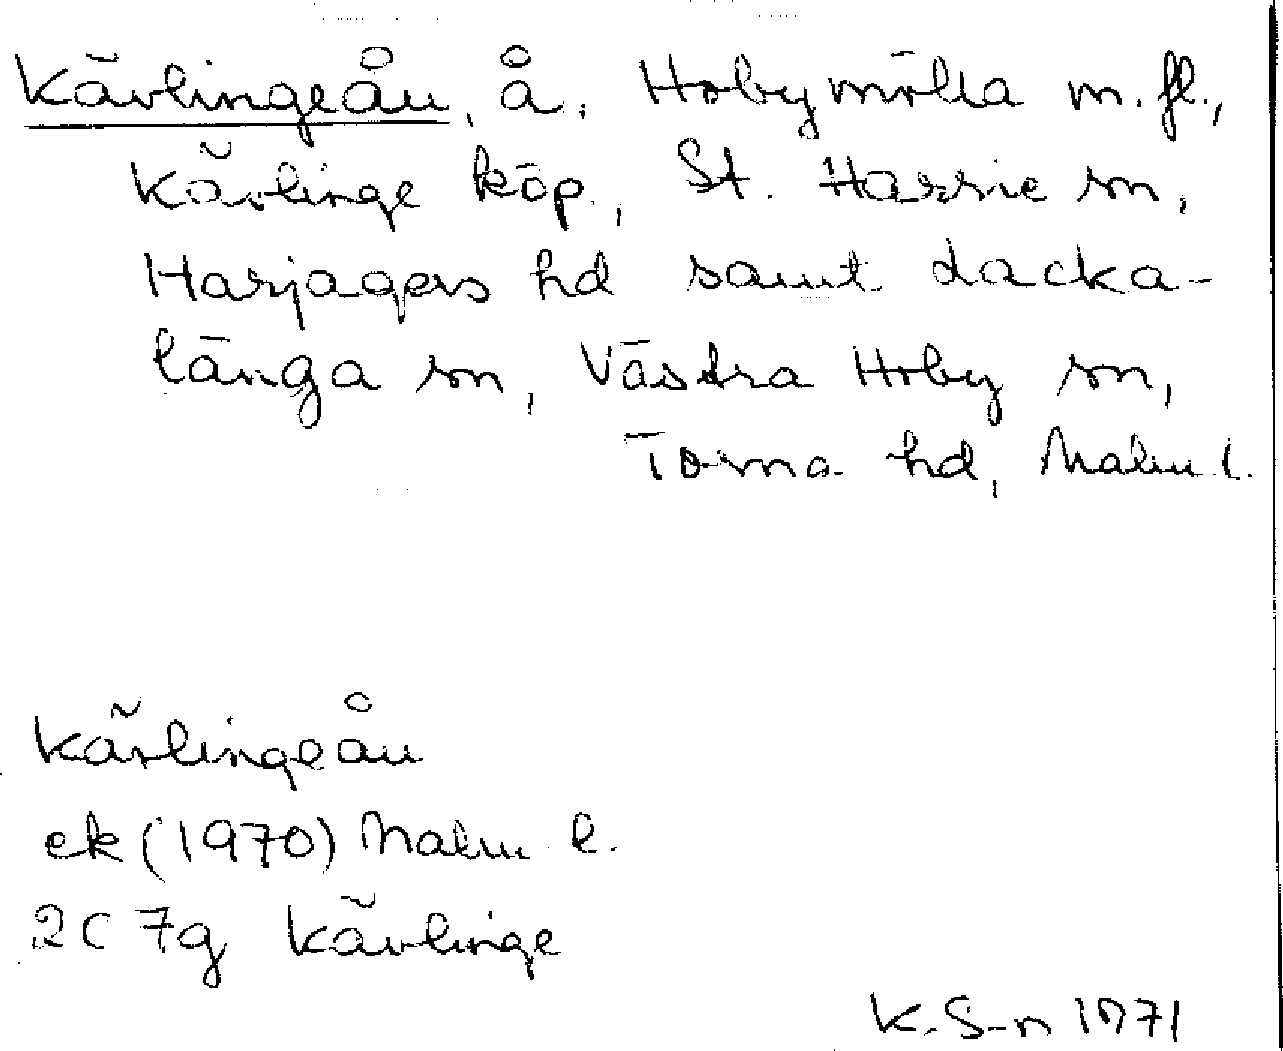 Kävlingeån, å, Hobymölla m. fl.,
Kävlinge köp., St. Harrie sn,
Harjagers hd samt Lacka-
länga sn, Västra Hoby sn,
Torna hd, Malm. l.
Kävlingeån
ek (1970) Malm. l.
2C 7g Kävlinge
K. S-n 1971